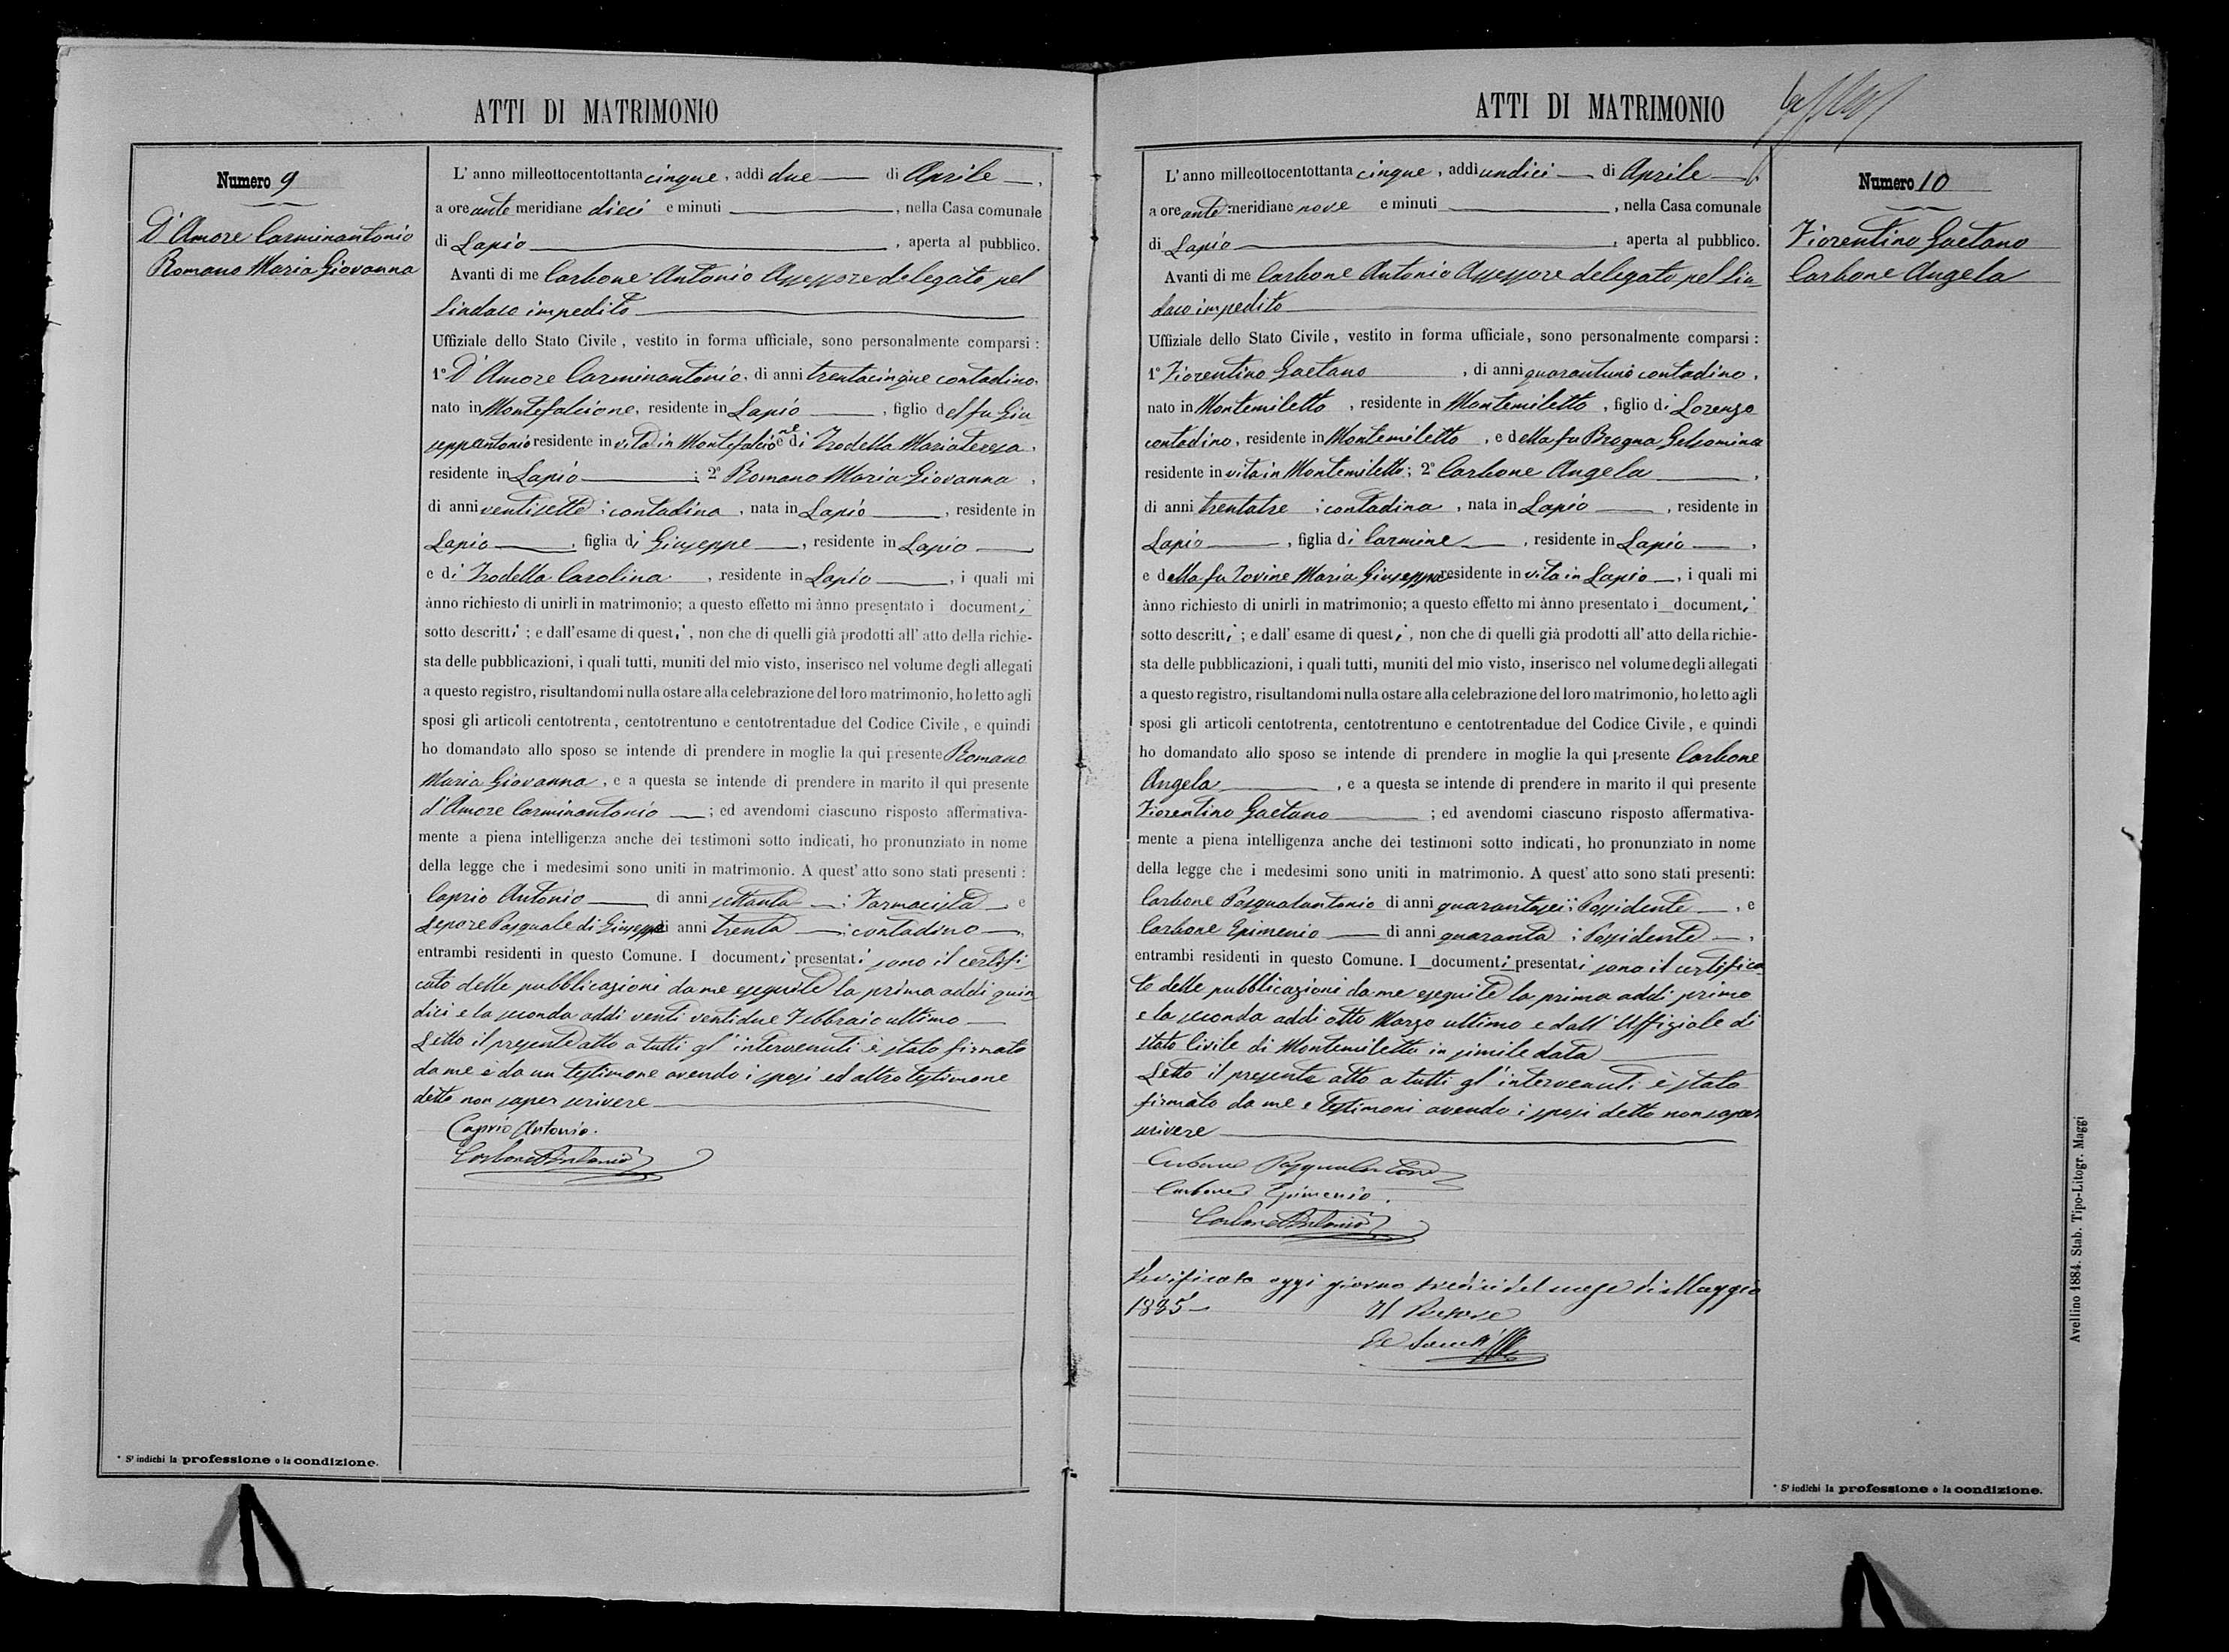 ATTI DI MATRIMONIO
Numero 9
D'Amore Carminantonio
Romano Maria Giovanna
L' anno milleottocentottanta cinque, addì due di Aprile,
a ore ante meridiane dieci e minuti , nella Casa comunale
di Lapio , aperta al pubblico.
Avanti di me Carbone Antonio Assessore delegato pel
Sindaco impedito
Uffiziale dello Stato Civile, vestito in forma ufficiale, sono personalmente comparsi:
1° D'Amore Carminantonio, di anni trentacinque contadino,
nato in Montefalcione, residente in Lapio , figlio del fu Giu
seppantonio residente in vita in Montefalcione e di Trodella Mariateresa,
residente in Lapio ; 2° Romano Maria Giovanna ,
di anni ventisette ; contadina , nata in Lapio , residente in
Lapio , figlia di Giuseppe , residente in Lapio
e di Trodella Carolina , residente in Lapio , i quali mi
ànno richiesto di unirli in matrimonio; a questo effetto mi ànno presentato i documenti
sotto descritti ; e dall'esame di questi , non che di quelli già prodotti all' atto della richie-
sta delle pubblicazioni, i quali tutti, muniti del mio visto, inserisco nel volume degli allegati
a questo registro, risultandomi nulla ostare alla celebrazione del loro matrimonio, ho letto agli
sposi gli articoli centotrenta, centotrentuno e centotrentadue del Codice Civile, e quindi
ho domandato allo sposo se intende di prendere in moglie la qui presente Romano
Maria Giovanna , e a questa se intende di prendere in marito il qui presente
d'Amore Carminantonio ; ed avendomi ciascuno risposto affermativa-
mente a piena intelligenza anche dei testimoni sotto indicati, ho pronunziato in nome
della legge che i medesimi sono uniti in matrimonio. A quest' atto sono stati presenti :
Caprio Antonio di anni settanta ; Farmacista e
Lepore Pasquale di Giuseppe di anni trenta ; contadino ,
entrambi residenti in questo Comune. I documenti presentati sono il certifi
cato delle pubblicazioni da me eseguite la prima addì quin
dici e la seconda addì venti ventidue Febbraio ultimo
Letto il presente atto a tutti gl'intervenuti è stato firmato
da me e da un testimone avendo i sposi ed altro testimone
detto non saper scrivere
Caprio Antonio.
Carbone Antonio
* S' indichi la professione o la condizione.
ATTI DI MATRIMONIO
Numero 10
Fiorentino Gaetano
Carbone Angela
L' anno milleottocentottanta cinque, addì undici di Aprile ,
a ore ante meridiane nove e minuti , nella Casa comunale
di Lapio , aperta al pubblico.
Avanti di me Carbone Antonio Assessore delegato pel Sin
daco impedito
Uffiziale dello Stato Civile, vestito in forma ufficiale, sono personalmente comparsi:
1° Fiorentino Gaetano , di anni quarantuno contadino ,
nato in Montemiletto , residente in Montemiletto , figlio di Lorenzo
contadino, residente in Montemiletto , e della fu Brogna Gelsomina
residente in vita in Montemiletto; 2° Carbone Angela ,
di anni trentatre ; contadina , nata in Lapio , residente in
Lapio , figlia di Carmine , residente in Lapio ,
e della fu Iovine Maria Giuseppa residente in vita in Lapio , i quali mi
ànno richiesto di unirli in matrimonio; a questo effetto mi ànno presentato i documenti
sotto descritti ; e dall' esame di questi , non che di quelli già prodotti all' atto della richie-
sta delle pubblicazioni, i quali tutti, muniti del mio visto, inserisco nel volume degli allegati
a questo registro, risultandomi nulla ostare alla celebrazione del loro matrimonio, ho letto agli
sposi gli articoli centotrenta, centotrentuno e centotrentadue del Codice Civile, e quindi
ho domandato allo sposo se intende di prendere in moglie la qui presente Carbone
Angela , e a questa se intende di prendere in marito il qui presente
Fiorentino Gaetano ; ed avendomi ciascuno risposto affermativa-
mente a piena intelligenza anche dei testimoni sotto indicati, ho pronunziato in nome
della legge che i medesimi sono uniti in matrimonio. A quest' atto sono stati presenti:
Carbone Pasqualantonio di anni quarantasei; Possidente , e
Carbone Epimenio di anni quaranta ; Possidente ,
entrambi residenti in questo Comune. I documenti presentati sono il certifica
to delle pubblicazioni da me eseguite la prima addì primo
e la seconda addì otto Marzo ultimo e dall'Uffiziale di
stato Civile di Montemiletto in simile data
Letto il presente atto a tutti gl'intervenuti è stato
firmato da me e testimoni avendo i sposi detto non saper
scrivere
Carbone Pasqualantonio
Carbone Epimenio.
Carbone Antonio
Verificato oggi giorno tredici del mese di Maggio
1885
Il Pretore
* S' indichi la professione o la condizione.
Avellino 1884. Stab. Tipo-Litogr. Maggi